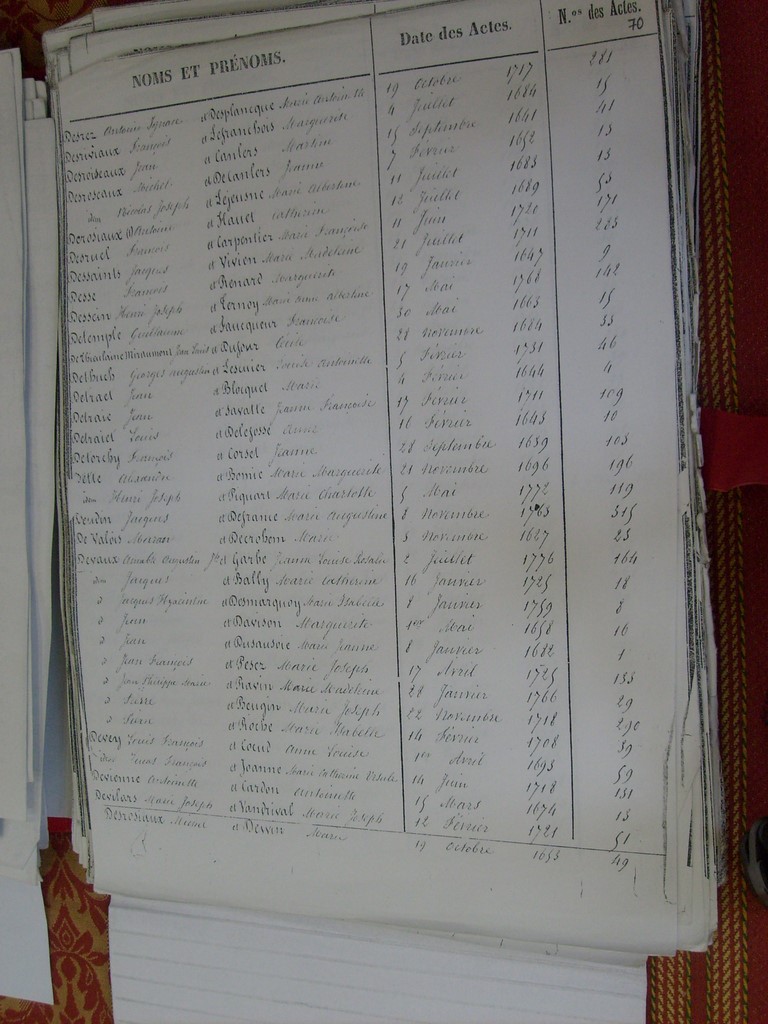 NOMS ET PRÉNOMS. Date des Actes. N.os des Actes.
70
Desrez Antoine Ignace et Desplancque Marie Antoinette 19 Octobre 1717 281
Desriviaux François et Lefranchois Marguerite 4 Juillet 1684 15
Desroiseaux Jean et Canlers Martine 15 Septembre 1641 41
Desroseaux Michel et Delanlers Jeanne 7 Février 1652 13
dem Nicolas Joseph et Lejeusne Marie Albertine 11 Juillet 1683 13
Dorosiaux Antoine et Hauet Catherine 12 Juillet 1689 53
Desruel François et Carpentier Marie Françoise 11 Juin 1720 171
Dessaints Jacques et Vivien Marie Madeleine 21 Juillet 1711 223
Desse François et Renard Marguerite 19 Janvier 1647 9
Dessein Henri Joseph et Ternoy Marie Anne Albertine 17 Mai 1768 142
Detemple Guillaume et Saucqueur Françoise 30 Mai 1663 15
Miraumont Jean Louis et Dufour Cécile 28 Novembre 1684 33
Dethuch Georges Augustin et Lescuier Louise Antoinette 5 Février 1731 46
Detrael Jean et Blocquet Marie 4 Février 1644 4
Detraie Jean et Savatte Jeanne Françoise 17 Février 1711 109
Detraiet Louis et Delefosse Anne 16 Février 1643 10
Detorchy François et Corset Jeanne 28 Septembre 1639 103
Dette Alexandre et Bomie Marie Marguerite 21 Novembre 1696 196
dem Henri Joseph et Piquart Marie Charlotte 5 Mai 1772 119
Deudin Jacques et Deframe Marie Augustine 8 Novembre 1763 315
De Valois et Decrohem Marie 3 Novembre 1627 23
Devaux Amable Augustin Jh et Garbe Jeanne Louise Rosalie 2 Juillet 1776 164
dem Jacques et Bally Marie Catherine 16 Janvier 1725 18
d Jacques Hyacinthe et Desmarquoy Marie Isabelle 8 Janvier 1759 8
d Jean et Davison Marguerite 1er Mai 1658 16
d Jean et Dusausoir Marie Jeanne 8 Janvier 1682 1
d Jean François et Pesez Marie Joseph 17 Avril 1725 133
d Jean Philippe Marie et Ravin Marie Madeleine 28 Janvier 1766 29
d Pierre et Beugin Marie Joseph 22 Novembre 1718 290
d Pierre et Roche Marie Isabelle 14 Février 1708 39
Devery Louis François et Coeul Anne Louise 1er Avril 1693 59
dem Louis François et Joanne Marie Catherine Ursule 14 Juin 1718 131
Devienne Antoinette et Cardon Antoinette 15 Mars 1674 13
Devilars Marie Joseph et Vandrival Marie Joseph 12 Février 1721 51
Desrosiaux Michel et Dewin Marie 19 Octobre 1653 49